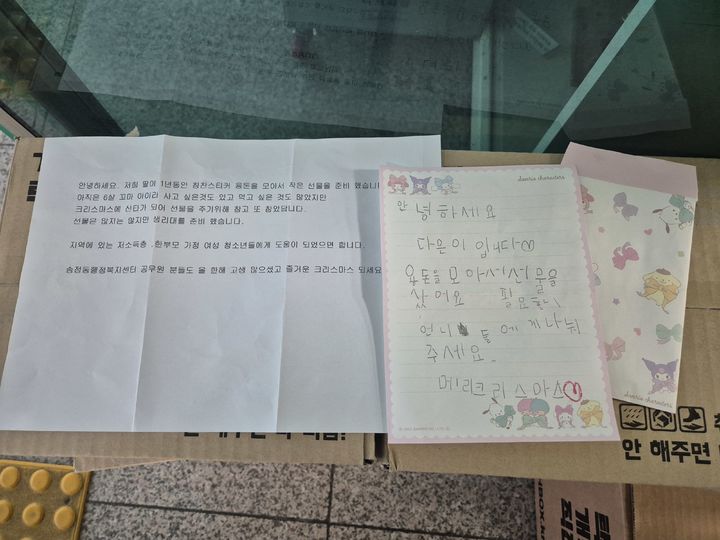 안녕하세요. 저희 딸이 1년동안 칭찬스티커 용돈을 모아서 작은 선물을 준비 했습니
아직은 6살 꼬마 아이라 사고 싶은것도 있고 먹고 싶은 것도 많았지만
크리스마스에 산타가 되어 선물을 주기위해 참고 또 참았답니다.
선물은 많지는 않지만 생리대를 준비 했습니다.
지역에 있는 저소득층 ,한부모 가정 여성 청소년들에게 도움이 되었으면 합니다.
송정동행정복지센터 공무원 분들도 올 한해 고생 많으셨고 즐거운 크리스마스 되세요
sanrio characters
안녕하세요
다은이 입니다♡
용돈을 모아서 선물을
샀어요 필요한
언니들에게 나눠
주세요.
메리크리스마스♡
sanrio characters
안 해주면